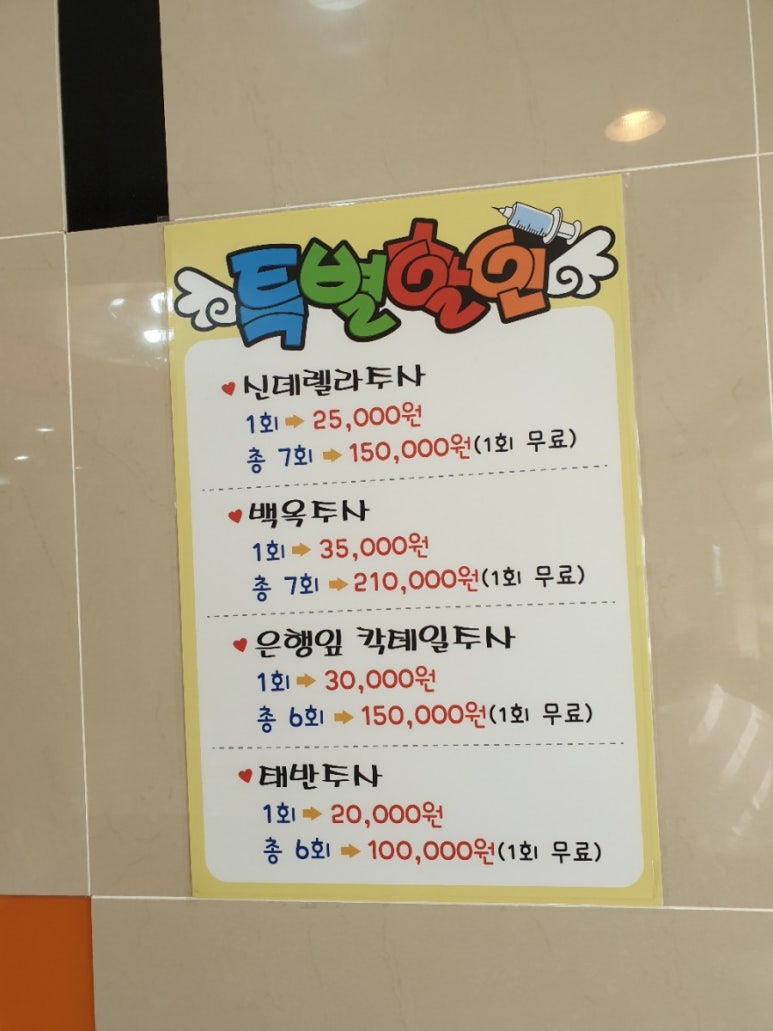 특별할인
신데렐라투사
1회 25,000원
총 7회 150,000원(1회 무료)
백옥투사
1회 35,000원
총 7회 210,000원(1회 무료)
은행잎 칵테일투사
1회 30,000원
총 6회 150,000원(1회 무료)
태반투사
1회 20,000원
총 6회 100,000원(1회 무료)